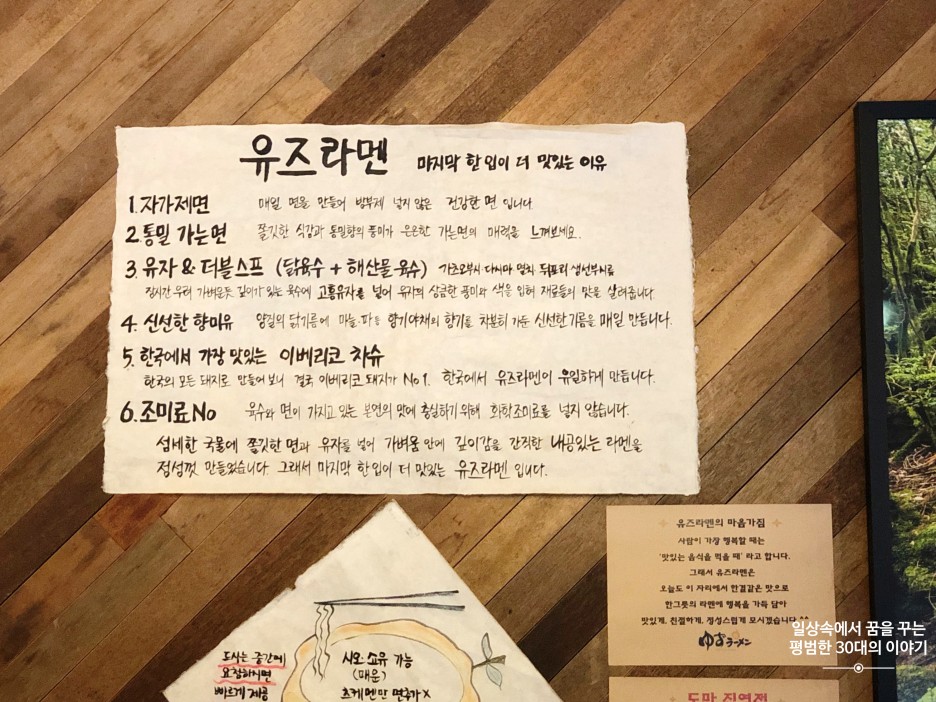 유즈라멘 마지막 한 입이 더 맛있는 이유
1. 자가제면 매일 면을 만들어 방부제 넣지 않은 건강한 면 입니다.
2. 통밀 가는면 쫄깃한 식감과 통밀향의 풍미가 은은한 가는면의 매력을 느껴보세요.
3. 유자 & 더블스프 (닭육수 + 해산물육수) 가츠오부시 다시마 멸치 뒤포리 생선부시를
장시간 우려 가벼운듯 깊이가 있는 육수에 고흥유자를 넣어 유자의 상큼한 풍미와 색을 입혀 재료들의 맛을 살려줍니다
4. 신선한 향미유 양질의 닭기름에 마늘.파등 향기야채의 향기를 차분히 가둔 신선한기름을 매일 만듭니다.
5. 한국에서 가장 맛있는 이베리코 차슈
한국의 모든 돼지로 만들어 보니 결국 이베리코 돼지가 No 1. 한국에서 유즈라멘이 유일하게 만듭니다.
6. 조미료 No 육수와 면이 가지고 있는 본연의 맛에 충실하기 위해 화학조미료를 넣지 않습니다.
섬세한 국물에 쫄깃한 면과 유자를 넣어 가벼움 안에 깊이감을 간직한 내공있는 라멘을
정성껏 만들었습니다. 그래서 마지막 한 입이 더 맛있는 유즈라멘 입니다.
유즈라멘의 마음가짐
사람이 가장 행복할 때는
'맛있는 음식을 먹을 때' 라고 합니다.
그래서 유즈라멘은
오늘도 이 자리에서 한결같은 맛으로
한그릇의 라멘에 행복을 가득 담아
맛있게, 친절하게, 정성스럽게 모시겠습니다 ^^
ゆずラーメン
도시는 중간에
요청하시면
빠르게 제공
시오 쇼유 가능
(매운)
츠케멘만 면추가 X
일상속에서 꿈을 꾸는
평범한 30대의 이야기